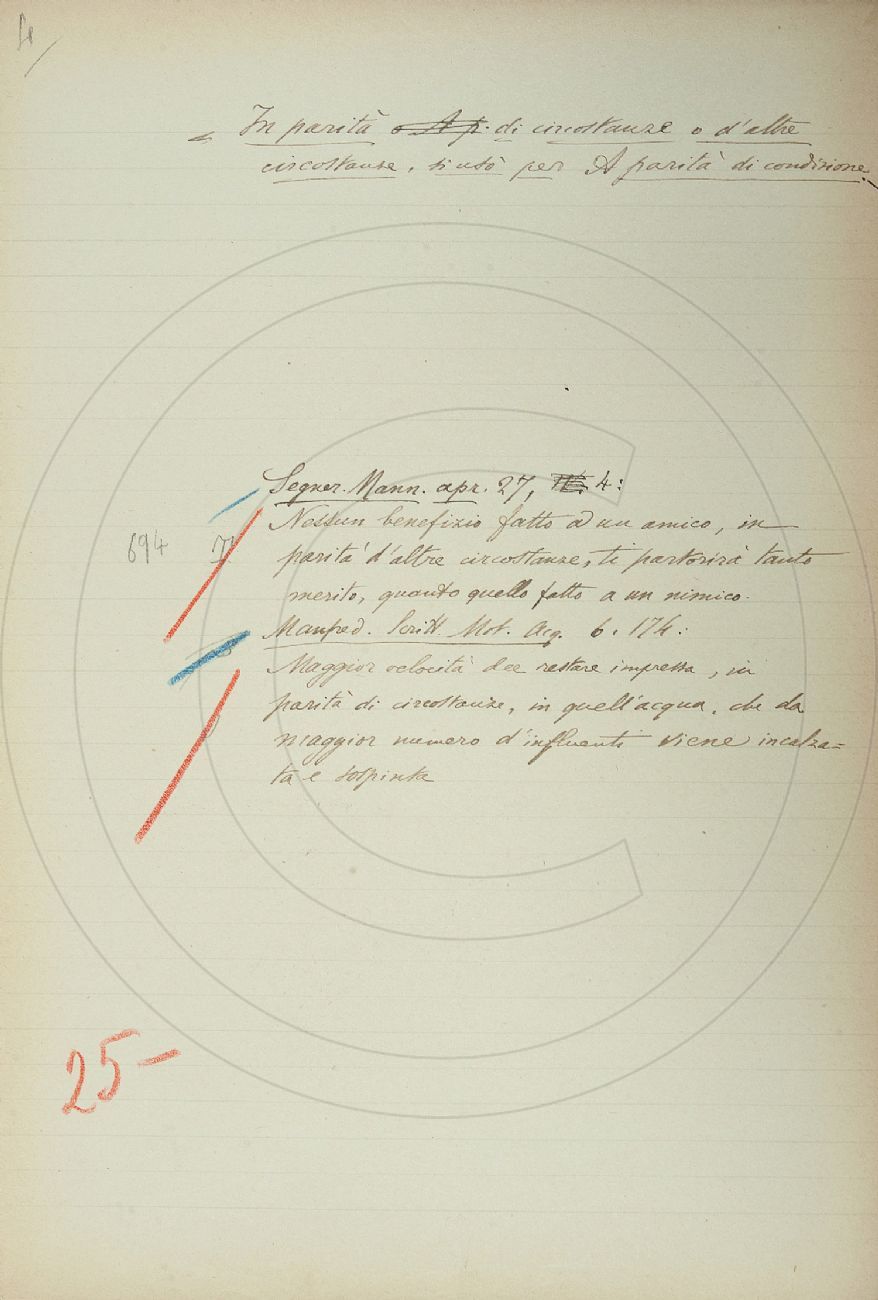 In parità o A p. di circostanze o d'altre
circostanze, si usò per A parità di condizione.
Segner. Mann. apr. 27, 4:
Nessun benefizio fatto a un amico, in
694
parità d'altre circostanze, ti partorirà tanto
merito, quanto quello fatto a un nimico.
Manfred. Scritt. Mot. Acq. 6. 174:
Maggior velocità dee restare impressa, in
parità di circostanze, in quell'acqua, che da
maggior numero d'influenti viene incalza=
ta e sospinta
25-